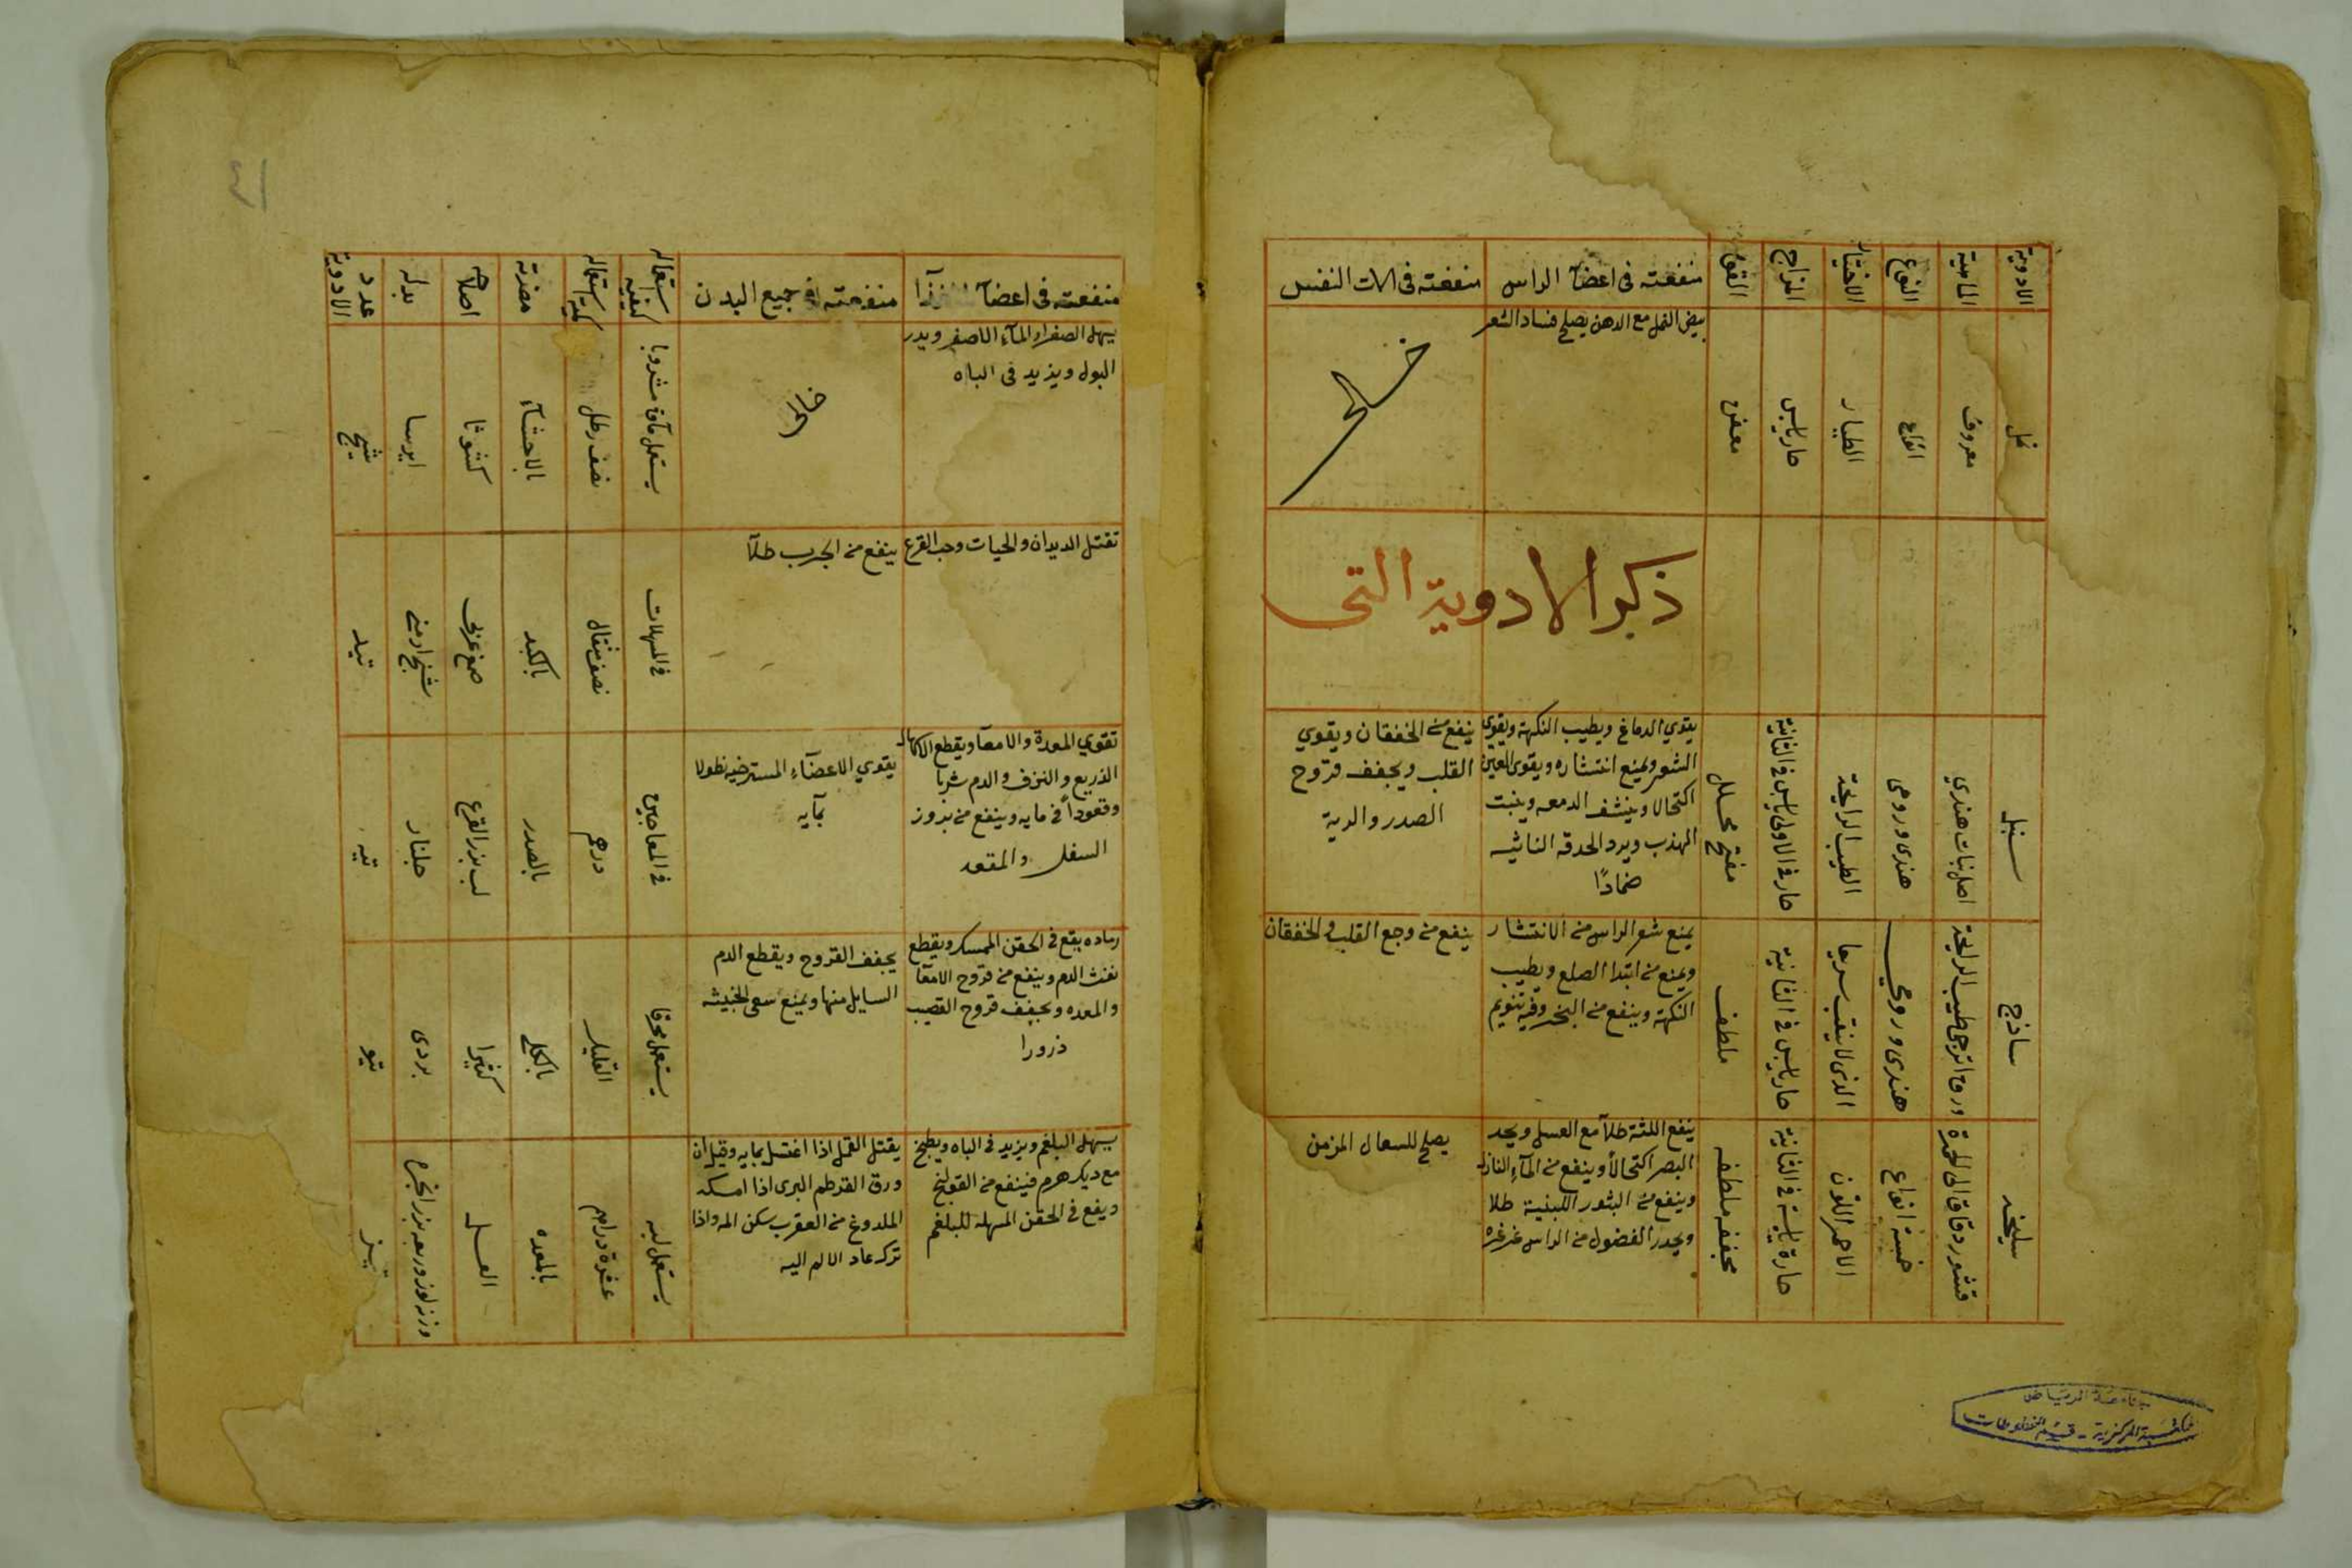 الادوية
الماهية
النوع
الاختيار
المزاج
القوى
منفعته في اعضآ الراس
منفعته في الات النفس
نمل
معروف
انواع
الطيار
حار يابس
معفن
بيض النمل مع الدهن يصلح فساد الشعر
ذكر الادوية التى
سنبل
اصل نبات هندي
هندى ورومى
الطيب الرايحة
حار فى الاولى يابس فى الثانية
مفتح محلل
يقوي الدماغ ويطيب النكهة ويقوي
الشعر ويمنع انتشاره ويقوى العين
اكتحالا وينشف الدمعه وينبت
الهدب ويرد الحدقه الناتيه
ضمادًا
ينفع من الخفقان ويقوي
القلب ويجفف قروح
الصدر والرية
ساذج
ورق اترجى طيب الرايحة
هندى ورومي
حار يابس فى الثانية
ملطف
يمنع شعر الراس من الانتشار
ويمنع من ابتدا الصلع ويطيب
النكهة وينفع من البخر وفيه تنويم
ينفع من وجع القلب والخفقان
سليخه
قشور دقاق الى الحمرة
خمسة انواع
الاحمر اللون
حارة يابسة فى الثانية
مجففه ملطفه
ينفع اللثة طلآ مع العسل ويحد
البصر اكتحالاً وينفع من المآء النازل
وينفع من البثور اللبنية طلا
ويحدر الفضول من الراس غرغره
يصلح للسعال المزمن
جامعة الرياض
المكتبة المركزية - قسم المخطوطات
منفعته في اعضآ
منفعته في جميع البدن
كيفية استعماله
كمية استعماله
مضرته
اصلاحه
بدله
عدد الادوية
يسهل الصفرا والمآء الاصفر ويدر
البول ويزيد فى الباه
نصف رطل
بالاحشآء
كشوثا
ايرسا
تقتل الديدان والحيات وحب القرع
ينفع من الجرب طلآ
فى المسهلات
نصف مثقال
بالكبد
صمغ عربى
شيح ارمنى
تيد
تقوي المعدة والامعآ ويقطع الاسهال
الذريع والنزف والدم شربا
وقعوداً فى مايه وينفع من بروز
السفل والمقعد
يقوي الاعضآء المسترخيه نطولا
بمآيه
فى المعاجين
درهم
بالصدر
لب بزر القرع
جلنار
تيه
رماده يقع فى الحقن الممسكه ويقطع
نفث الدم وينفع من قروح الامعآ
والمعده ويجفف قروح القضيب
ذرورا
يجفف القروح ويقطع الدم
السايل منها ويمنع سعى الخبيثه
يستعمل محرقا
القليل
بالكلى
كثيرا
بردى
تيو
يسهل البلغم ويزيد فى الباه ويطبخ
مع ديك هرم فينفع من القولنج
ويقع فى الحقن المسهله للبلغم
يقتل القمل اذا اغتسل بمايه وقيل ان
ورق القرطم البرى اذا امسكه
الملدوغ من العقرب سكن المه واذا
تركه عاد الالم اليه
يستعمل لبه
عشرة دراهم
بالمعده
العسل
تيز